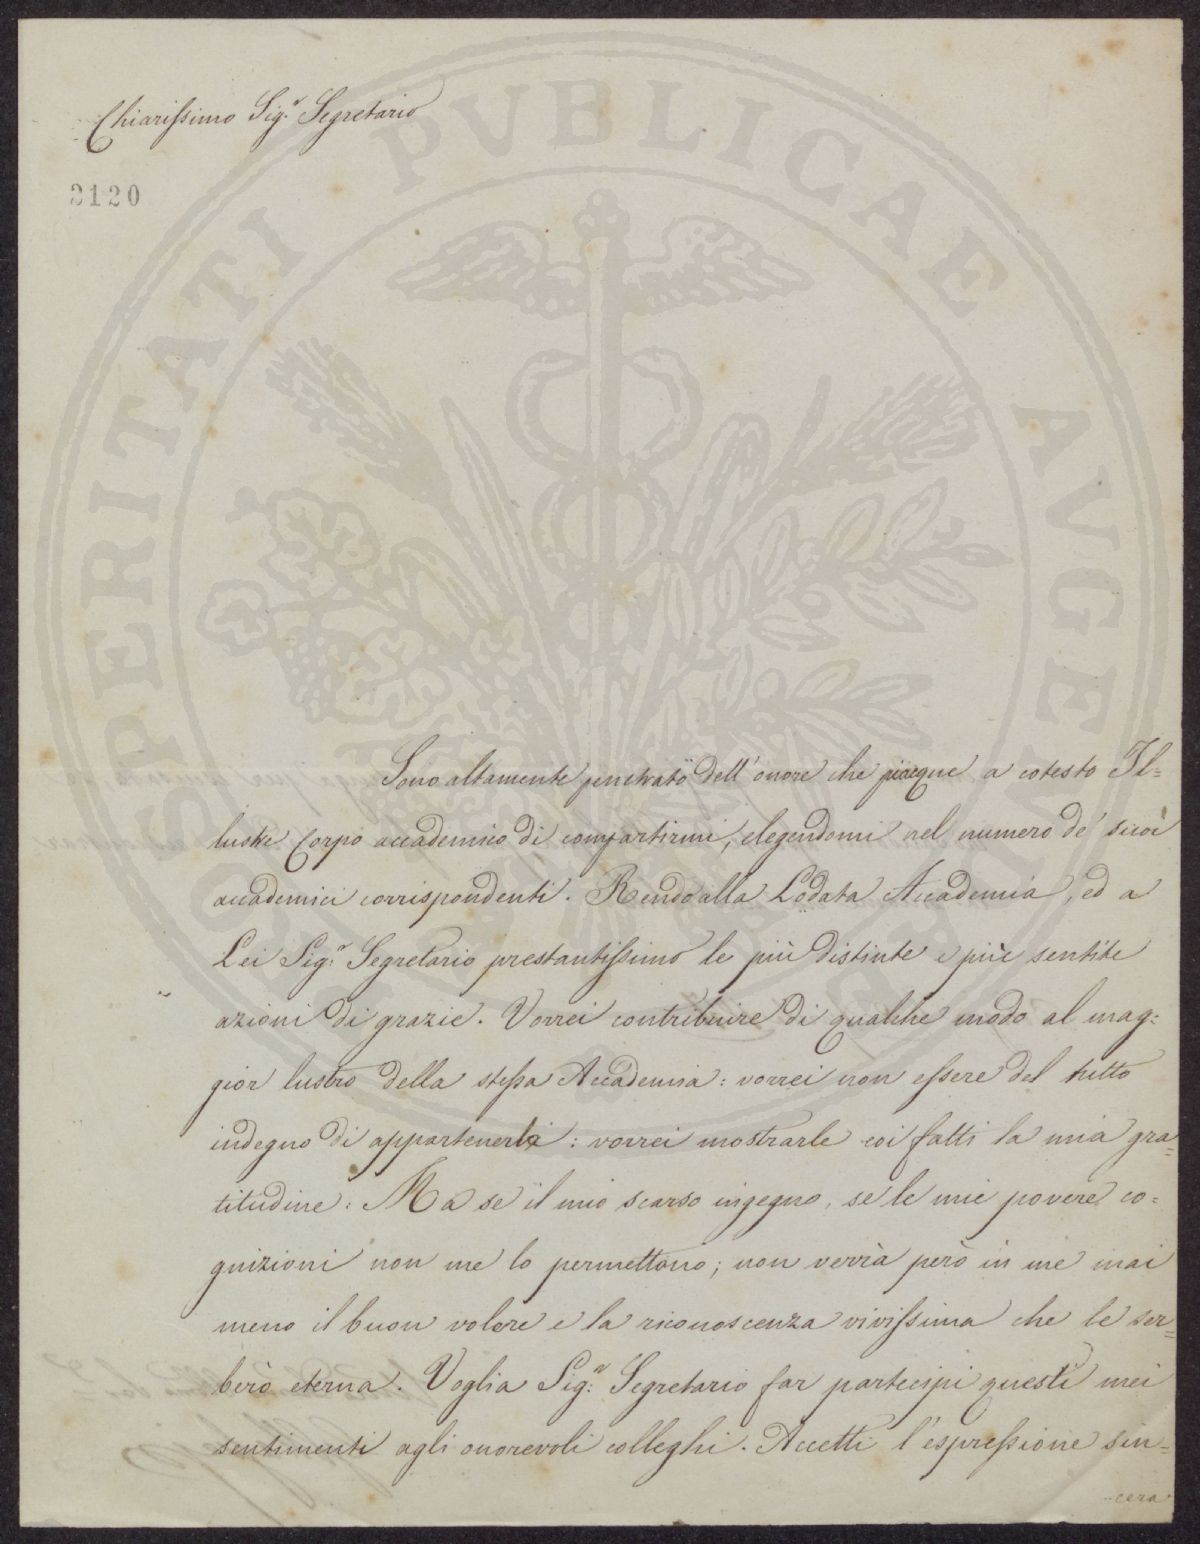 Chiarissimo Sig.r Segretario
3120
PROSPERITATI PVBLICAE AVGENDAE
Sono altamente penetrato dell'onore che piacque a cotesto Il=
lustre Corpo accademico di compartirmi, elegendomi nel numero de' sicoi
accademici corrispondenti. Rendo alla Lodata Accademia, ed a
Lei Sig.r Segretario prestantissimo le più distinte e più sentite
azioni di grazie. Vorrei contribuire di qualche modo al mag=
gior lustro della stessa Accademia: vorrei non essere del tutto
indegno di appartenerla: vorrei mostrarle coi fatti la mia gra=
titudine: Ma se il mio scarso ingegno, se le mie povere co=
gnizioni non me lo permettono; non verrà però in me mai
meno il buon volere e la riconoscenza vivissima che le ser=
berò eterna. Voglia Sig.r Segretario far partecipi questi miei
sentimenti agli onorevoli colleghi. Accetti l'espressione sin=
cera